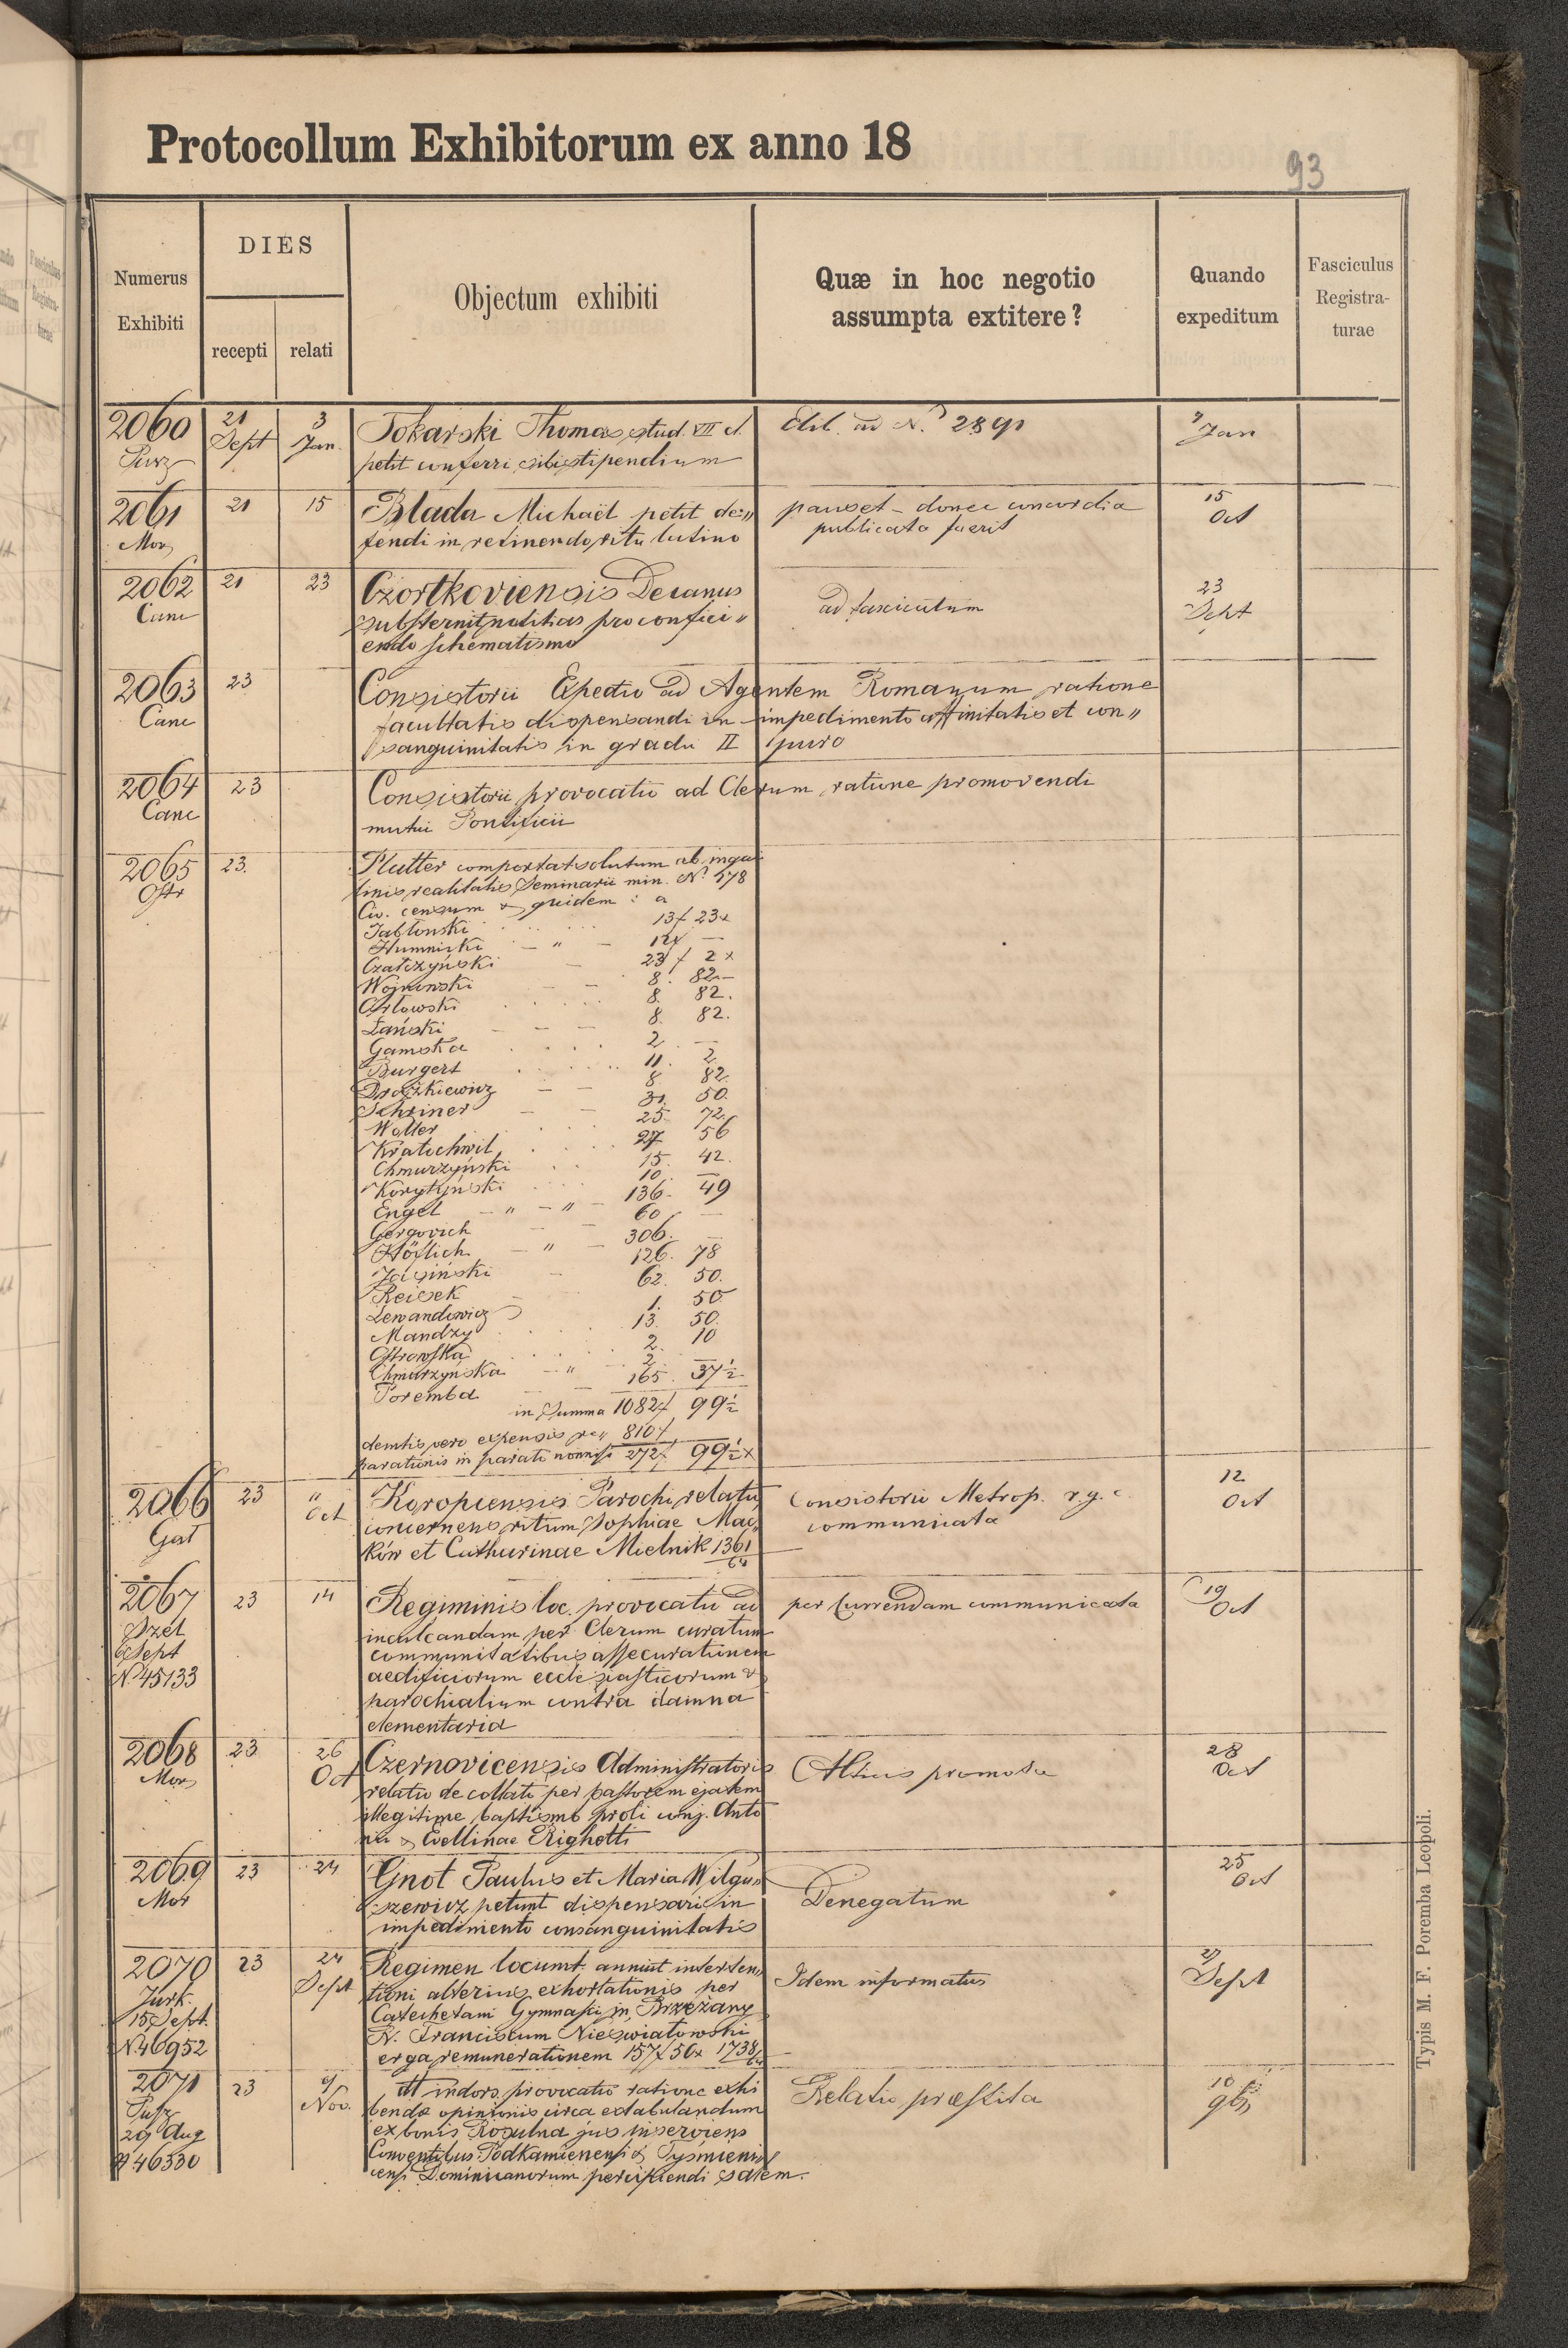 Protocollum Exhibitorum ex anno 18
93
Numerus Exhibiti
DIES
recepti relati
Objectum exhibiti
Quæ in hoc negotio
assumpta extitere?
Quando
expeditum
Fasciculus
Registra-
turae
2060 21 Sept 3 Jan. Tokarski Thomas stud. VII cl.
petit conferri sibi stipendium
ad N. 2891
7 Jan
2061 Mor 21 15 Blada Michaël petit de„
fendi in retinendo ritu latino
pauset – donec concordia
publicata fuerit
15 Oct
2062 Canc 21 23 Czortkoviensis Decanus
substernit notitias pro confici„
endo schematismo
ad fasciculum
23 Sept
2063 Canc 23 Consistorii Expeditio ad Agentem Romanum ratione
facultatis dispensandi in impedimento affinitatis et con„
sanguinitatis in gradu II puro
2064 Canc 23 Consistorii provocatio ad Clerum ratione promovendi
mutui Pontificii
2065 Ostr 23. Plutter comportat solutum ab inqui
linis realitatis Seminarii min. N. 178
Civ. censum & quidem : a
Jabłonski 13f 23x
Humnicki 12f —
Czałczyński 23f 2x
Wojnowski 8. 82—
Orłowski 8. 82.
Łański 8. 82.
Gamska 2. —
Burgert 11. 2
Drożkiewicz 8. 82
Schriner 31. 50.
Wolter 25. 72.
Kratochwil 27. 56
Chmurzyński 15. 42.
Korytyński 10. —
Engel 136. 49
Gergovich 60 —
Höflich 306. —
Jasiński 126. 78
Reisek 62. 50.
Lewandowicz 1. 50
Mandzy 13. 50.
Ostrowska 2. 10
Chmurzyńska 2.
Poremba 165. 37½
in Summa 1082f 99½
demtis vero expensis re„ 810f
parationis in parato nonnisi 272f 99½x
2066 Gal 23 " Oct Koropiensis Parochi relatio
concernens ritum Sophiae Mac„
ków et Catharinae Mielnik 1361
Consistorio Metrop. r. g. c.
communicata
12 Oct
2067 23 14 Regiminis loc. provocatio ad
6 Sept
N. 45133
inculcandam per Clerum curatum
communitatibus assecurationem
aedificiorum ecclesiasticorum &
parochialium contra damna
elementaria
per Currendam communicata
19 Oct
2068 Mor 23 26 Oct Czernovicensis Administratoris
relatio de collato per pastorem ejatem
illegitime baptismo proli conj. Anto
nii & Evellinae Righetti
Altius promota
28 Oct
2069 Mor 23 24 Gnot Paulus et Maria Wilgu„
szewicz petunt dispensari in
impedimento consanguinitatis
Denegatum
25 Oct
2070 Jurk. 23 24 Sept Regimen locumt. annuit intertten„
15 Sept.
N. 46952
tioni alterius exhortationis per
Catechetam Gymnasii in Brzeżany
R. Franciscum Nieświatowski
erga remunerationem 157f 50x 1738
Idem informatus
27 Sept
2071 23 9 Nov. indors. provocatio ratione exhi
29 Aug
46330
bendae opinionis circa extabulandum
ex bonis Rosulna jus inserviens
Conventibus Podkamienensi & Tysmieni„
censi Dominicanorum percipiendi salem.
Relatio præstita
10 9b
Typis M. F. Poremba Leopoli.